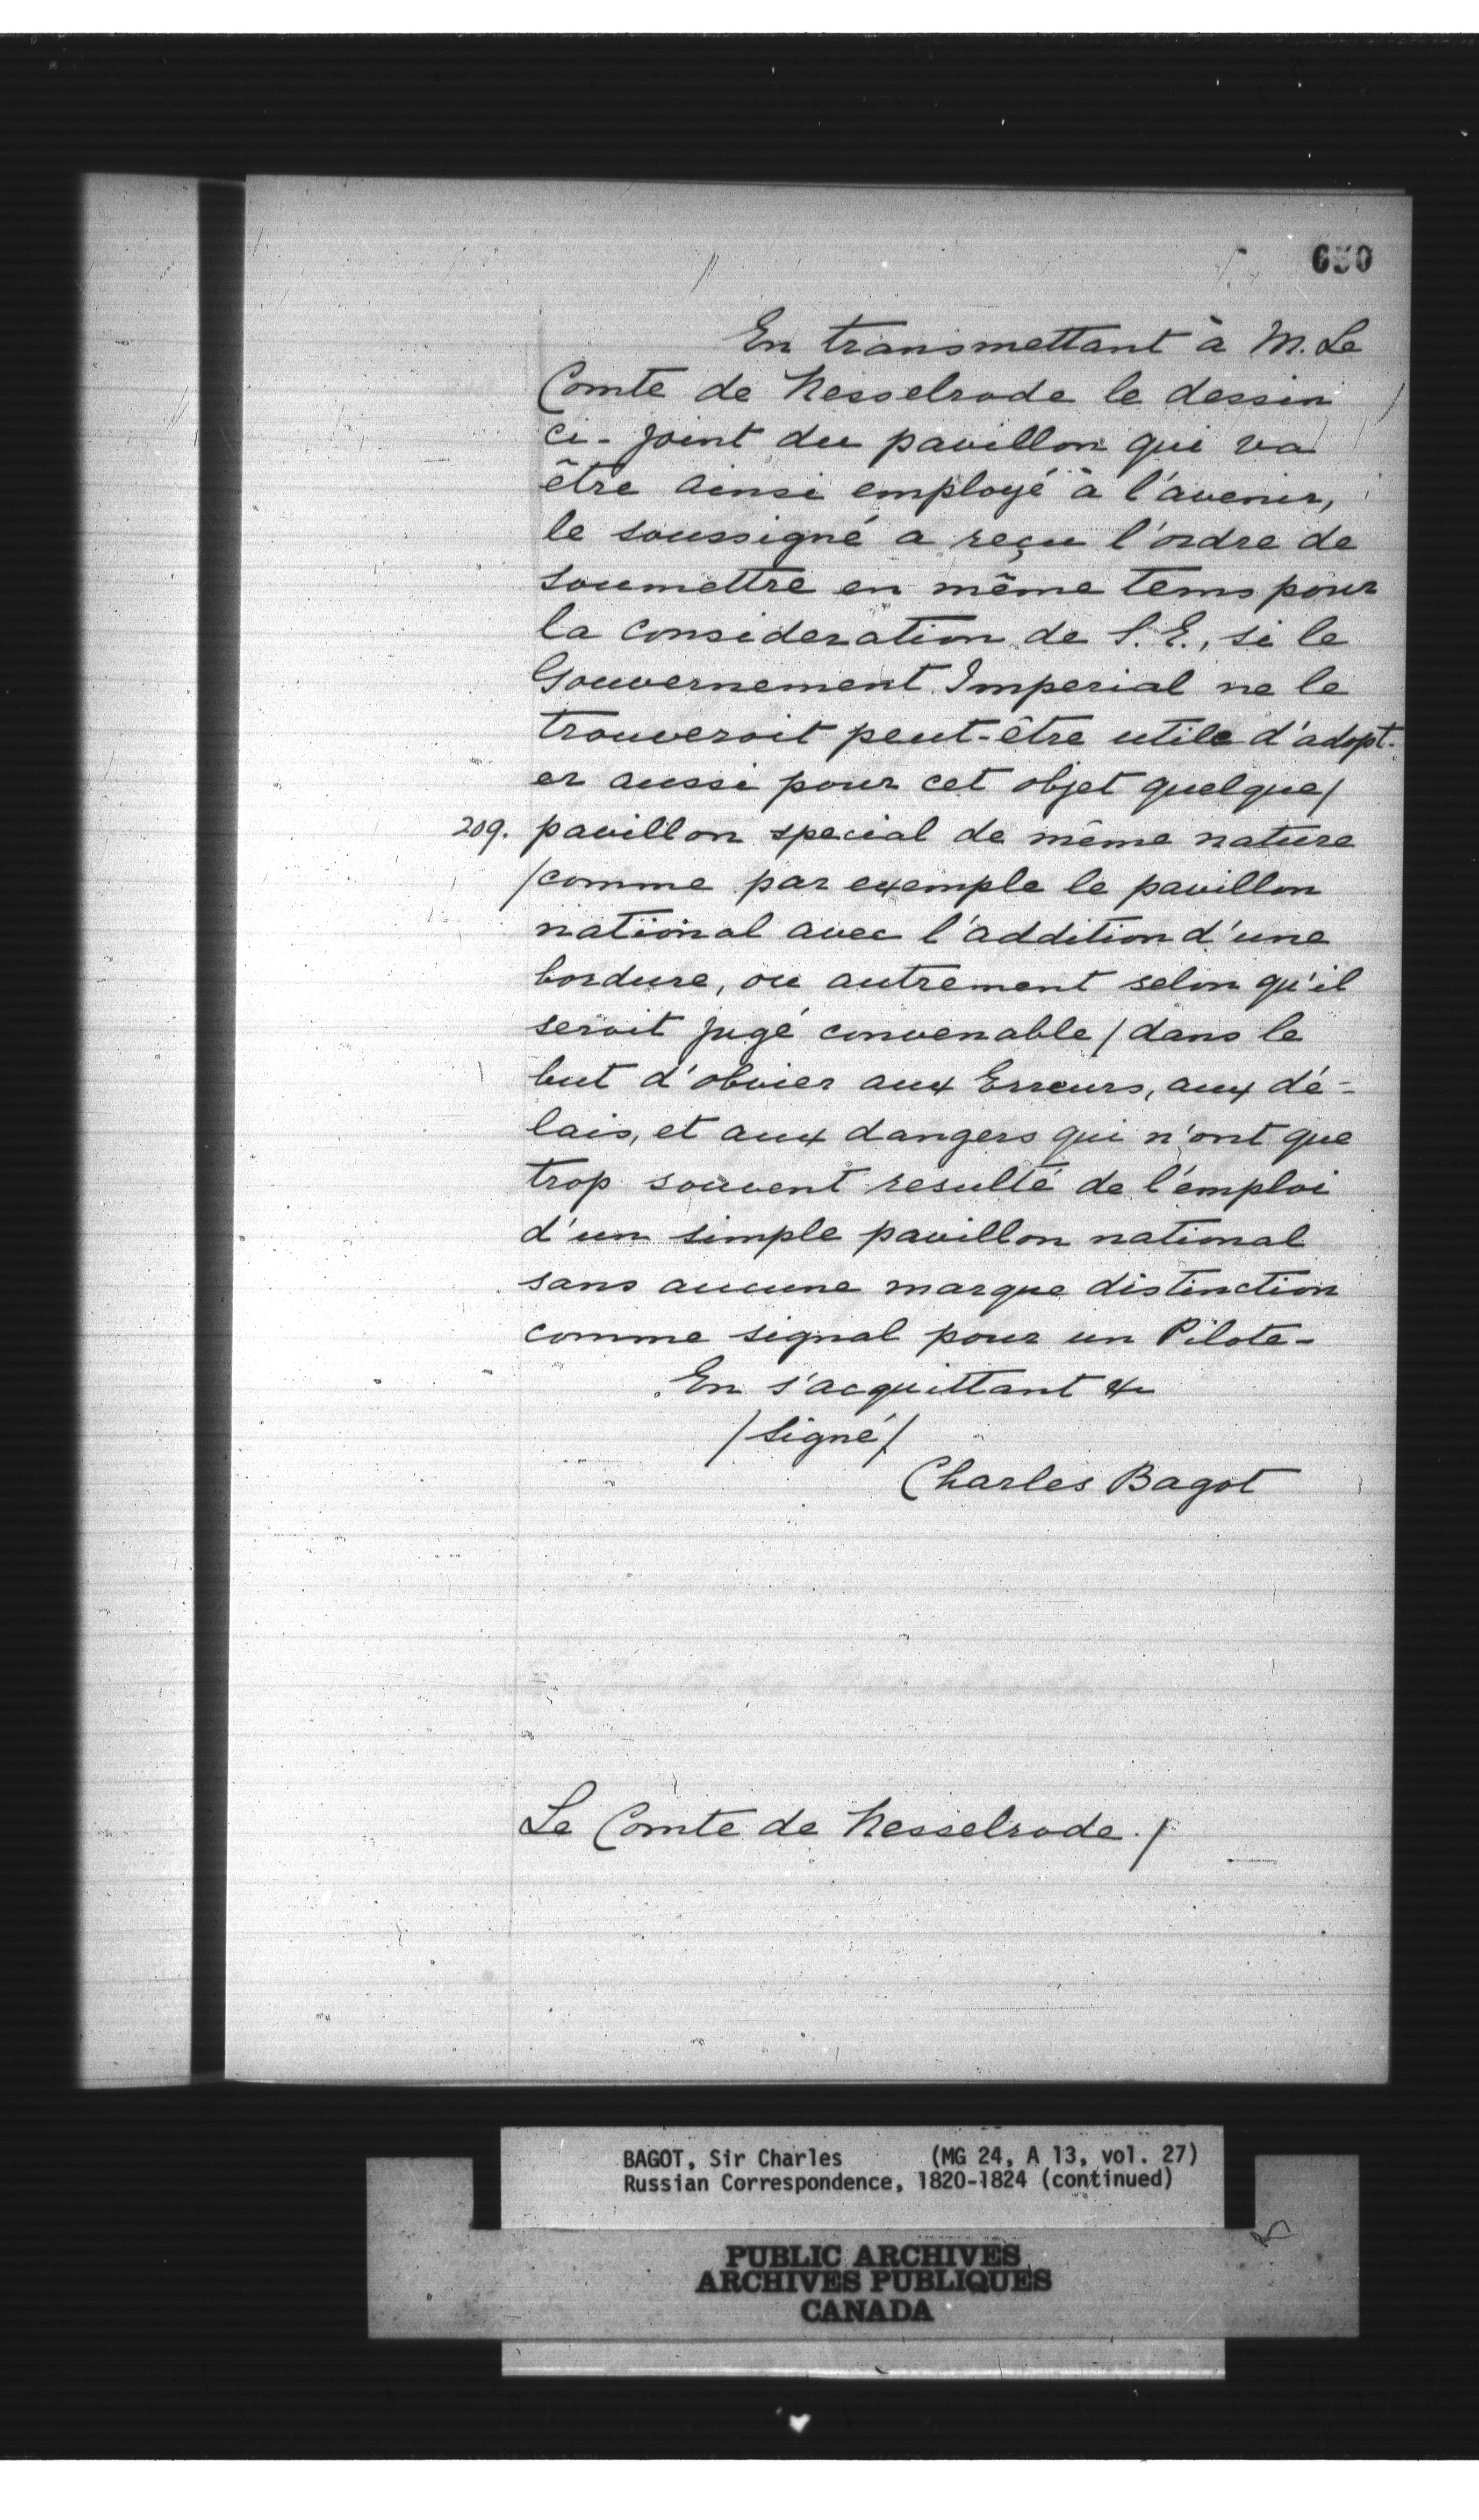 650
En transmettant à M. Le
Comte de Nesselrode le dessin
ci-joint du pavillon qui va
être ainsi employé à l'avenir,
le soussigné a reçu l'ordre de
soumettre en même tems pour
la consideration de S.E., si le
Gouvernement Imperial ne le
trouveroit peut-être utile d'adopt-
er aussi pour cet objet quelque/
209. pavillon special de même nature
/comme par exemple le pavillon
national avec l'addition d'une
bordure, ou autrement selon qu'il
seroit jugé convenable/ dans le
but d'obvier aux Erreurs, aux dé-
lais, et aux dangers qui n'ont que
trop souvent resulté de l'emploi
d'un simple pavillon national
sans aucune marque distinction
comme signal pour un Pilote-
En s'acquittant &c
/signé/
Charles Bagot
Le Comte de Nesselrode./
BAGOT, Sir Charles (MG 24, A 13, vol. 27)
Russian Correspondence, 1820-1824 (continued)
PUBLIC ARCHIVES
ARCHIVES PUBLIQUES
CANADA